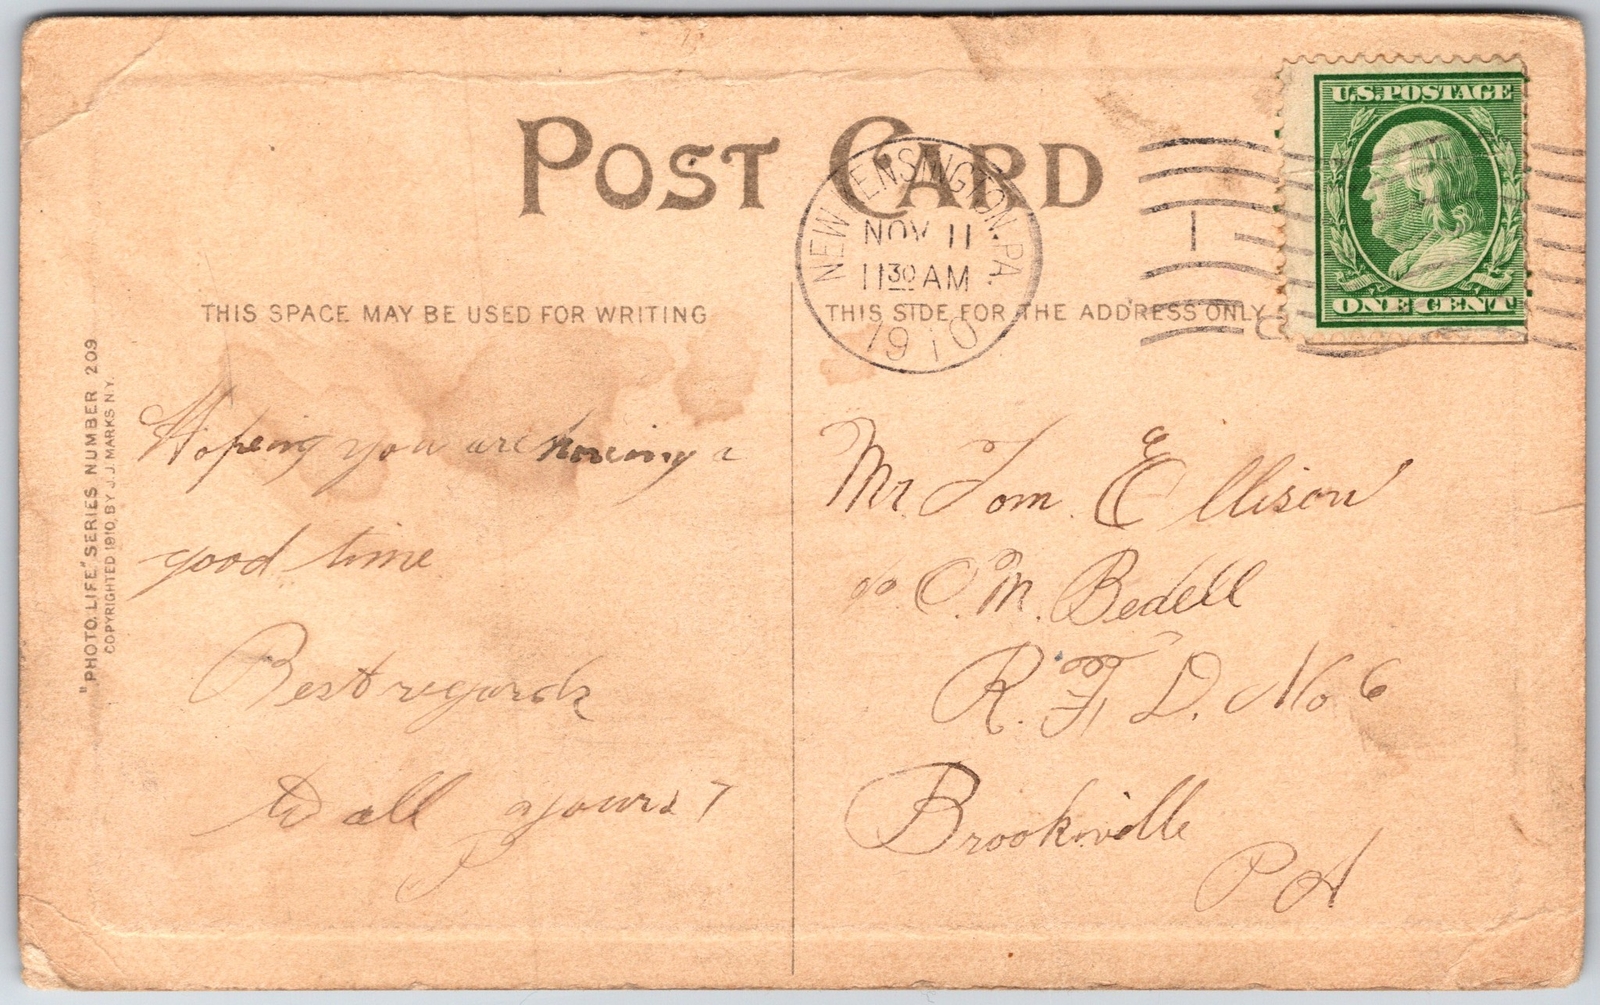 POST CARD
NEW KENSINGTON, PA.
NOV 11
11 30 AM
1910
1
U.S. POSTAGE
ONE CENT
THIS SPACE MAY BE USED FOR WRITING
THIS SIDE FOR THE ADDRESS ONLY
"PHOTO. LIFE" SERIES NUMBER 209
COPYRIGHTED 1910, BY J. J. MARKS N.Y.
Hopeing you are haveing a
good time
Best regards
to all yours T
P
Mr Tom Ellison
c/o C. M. Bedell
R. F. D. No 6
Brookville
PA